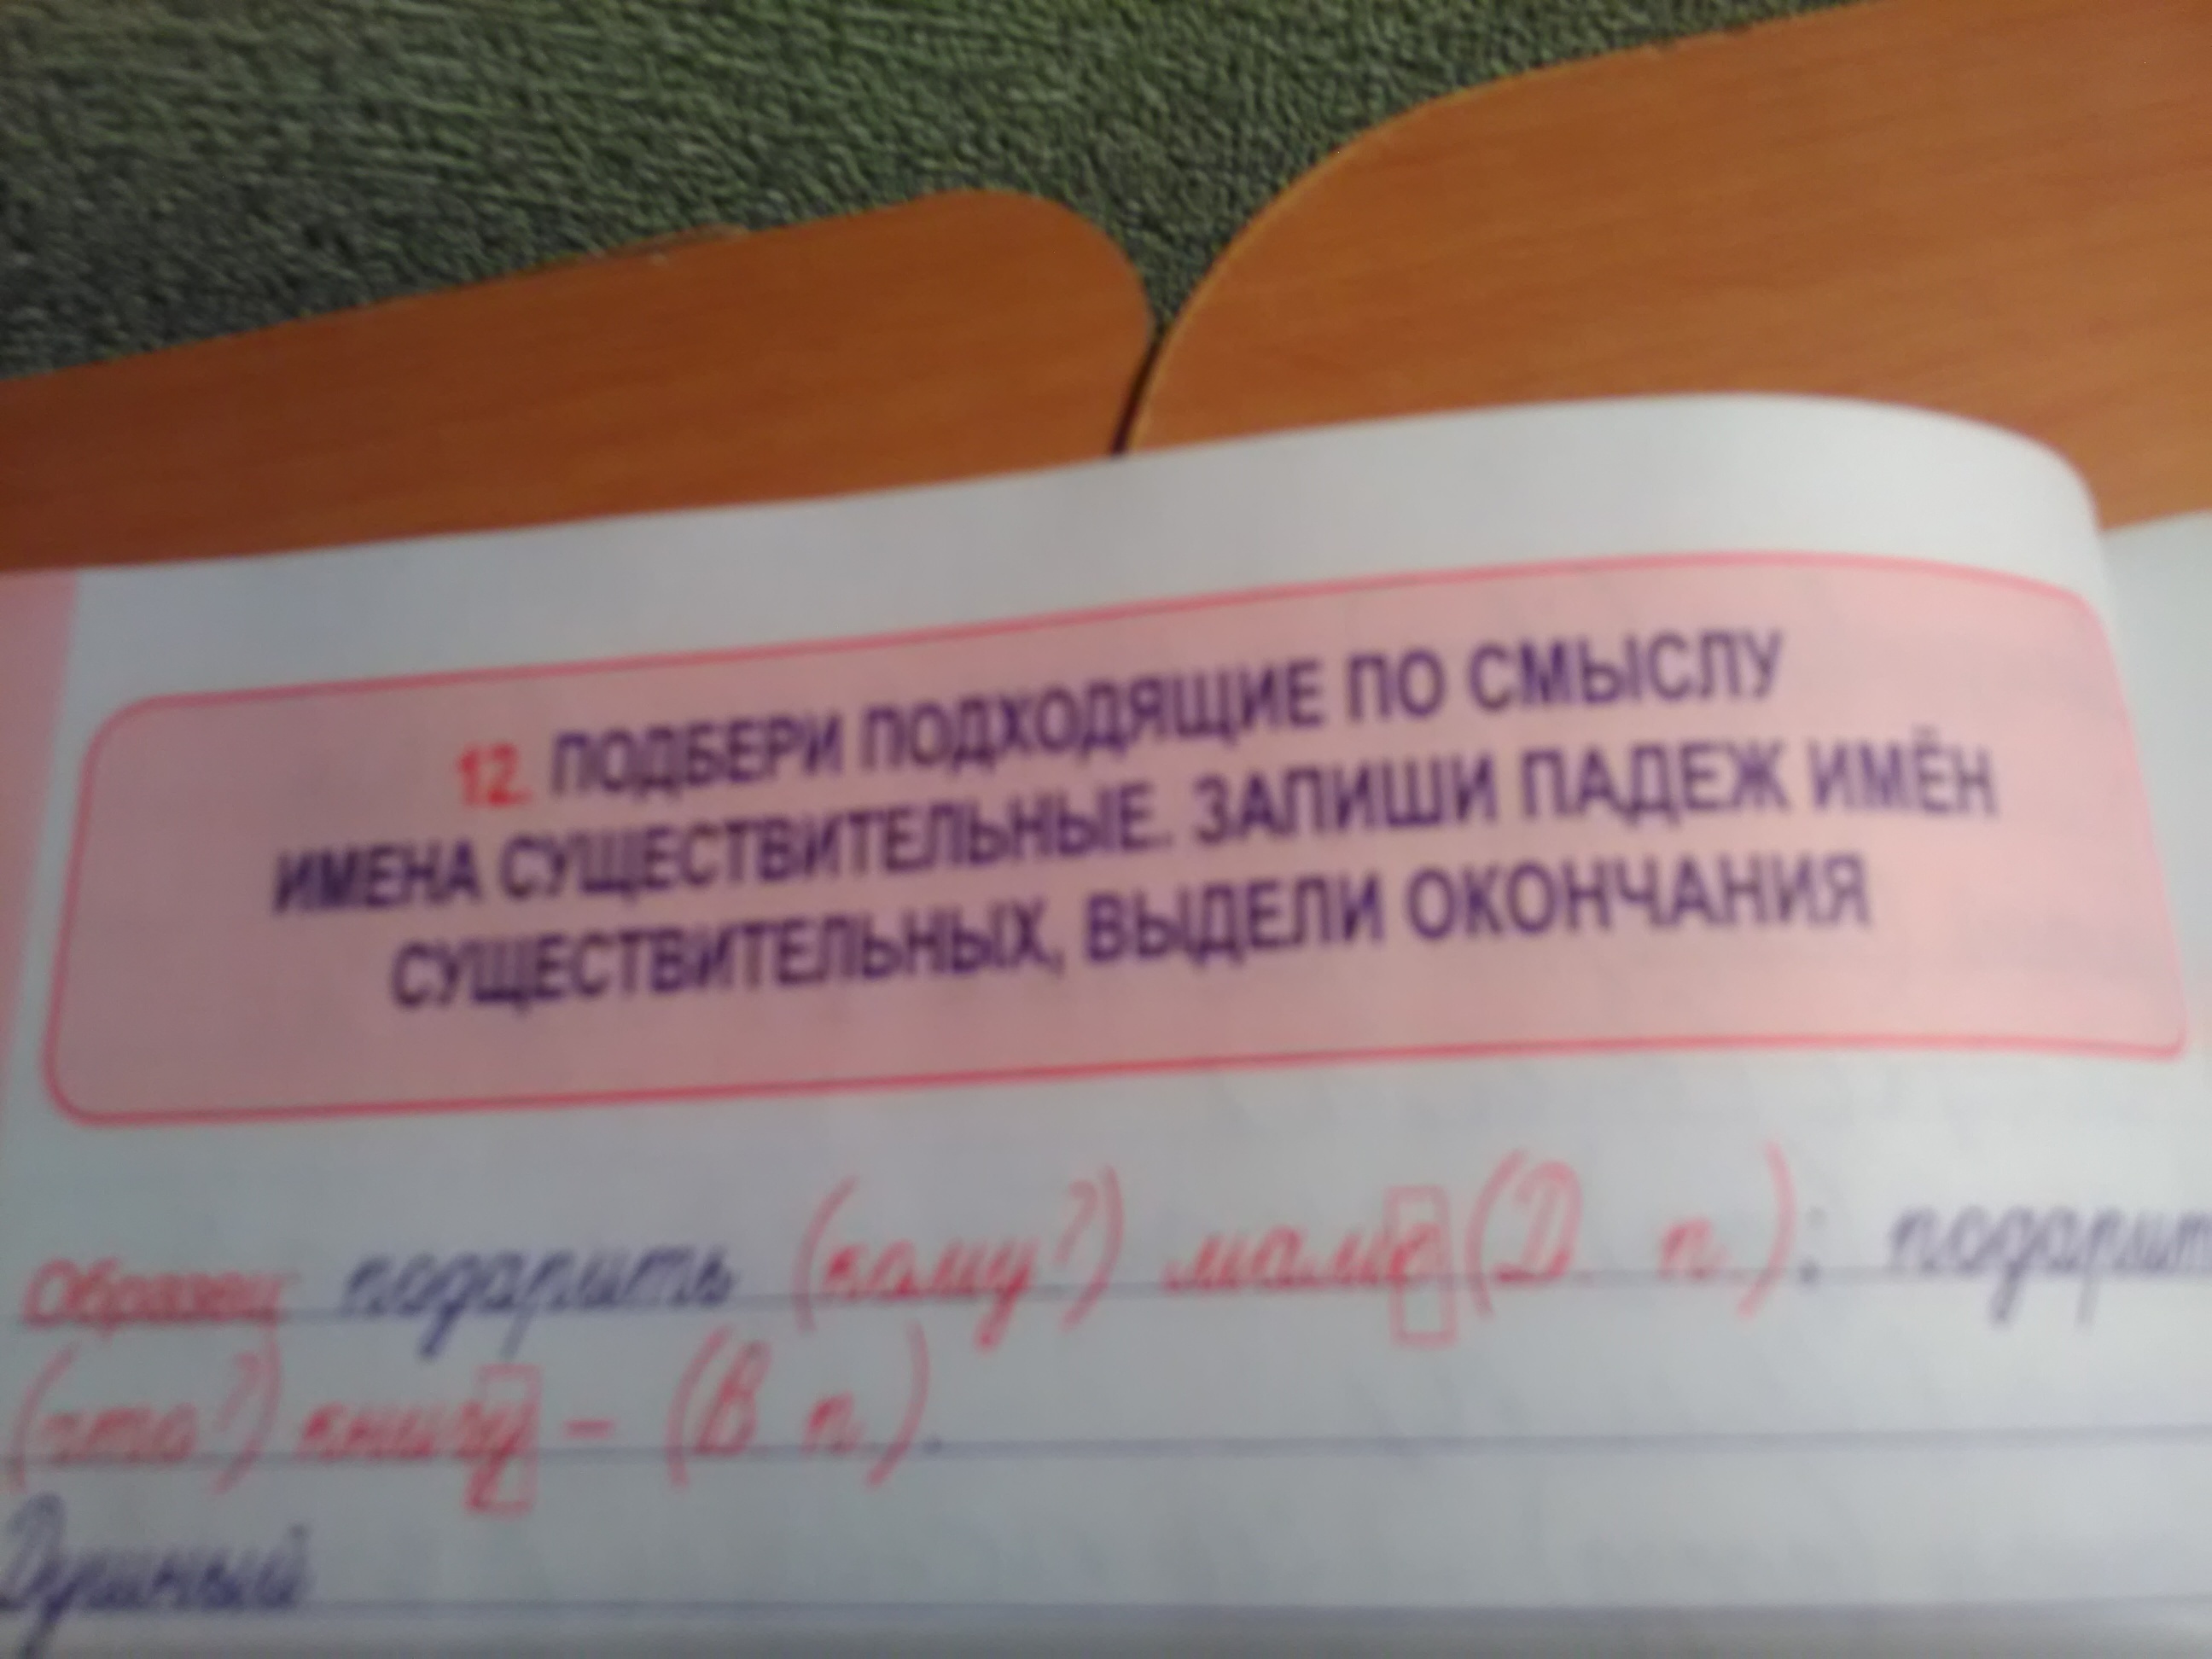 12. ПОДБЕРИ ПОДХОДЯЩИЕ ПО СМЫСЛУ
ИМЕНА СУЩЕСТВИТЕЛЬНЫЕ. ЗАПИШИ ПАДЕЖ ИМЁН
СУЩЕСТВИТЕЛЬНЫХ, ВЫДЕЛИ ОКОНЧАНИЯ
Образец: подарить (кому?) маме (Д. п.); подарить
(что?) книгу – (В. п.).